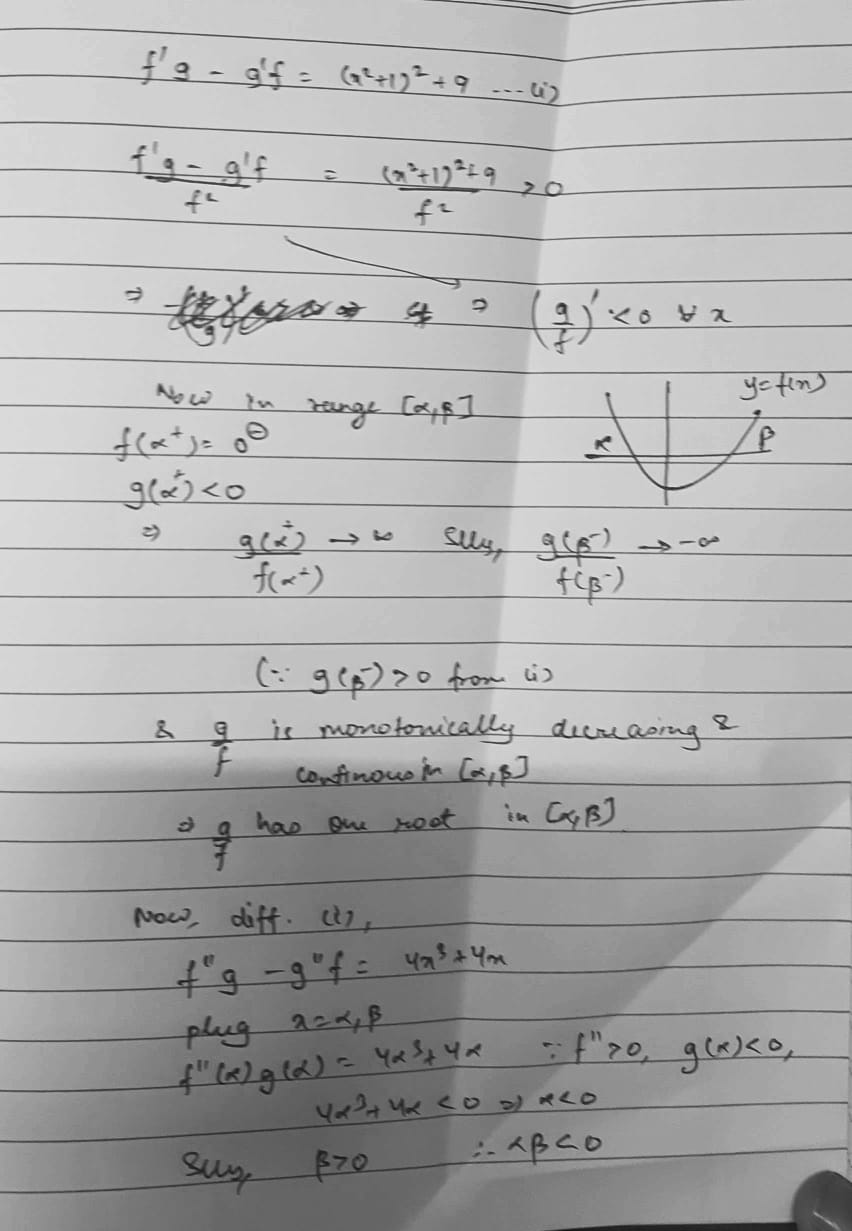 f'g - g'f = (x²+1)² + 9 ---(i)
(f'g - g'f)/f² = ((x²+1)²+9)/f² > 0
⇒ ⇒ (g/f)' < 0 ∀ x
Now in range [α,β]
y=f(x)
α β
f(α⁺) = 0⊖
g(α⁺) < 0
⇒ g(α⁺)/f(α⁺) → ∞ Slly, g(β⁻)/f(β⁻) → -∞
(∵ g(β⁻) > 0 from (i)
& g/f is monotonically decreasing &
continous in [α,β]
⇒ g/f has one root in [α,β]
Now, diff. (i),
f"g - g"f = 4x³ + 4x
plug x = α,β
f"(α) g(α) = 4α³ + 4α ∵ f" > 0, g(α) < 0,
4α³ + 4α < 0 ⇒ α < 0
Slly, β > 0 ∴ αβ < 0